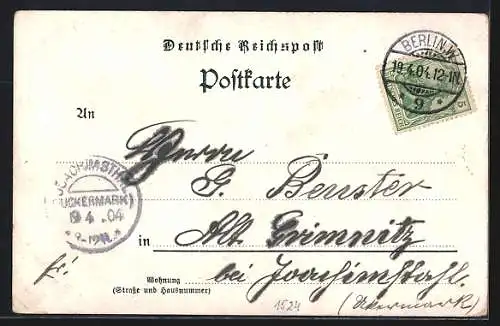 Deutsche Reichspost
Postkarte
BERLIN.W.
19.4.04.12-1N.
* 9 *
5
An
Herrn
G. Benster
JOACHIMSTHAL
(UCKERMARK)
19 4 .04
in Alt Grimnitz
fr.
bei Joachimstahl.
Wohnung
(Straße und Hausnummer)
(Ukermark)
1524